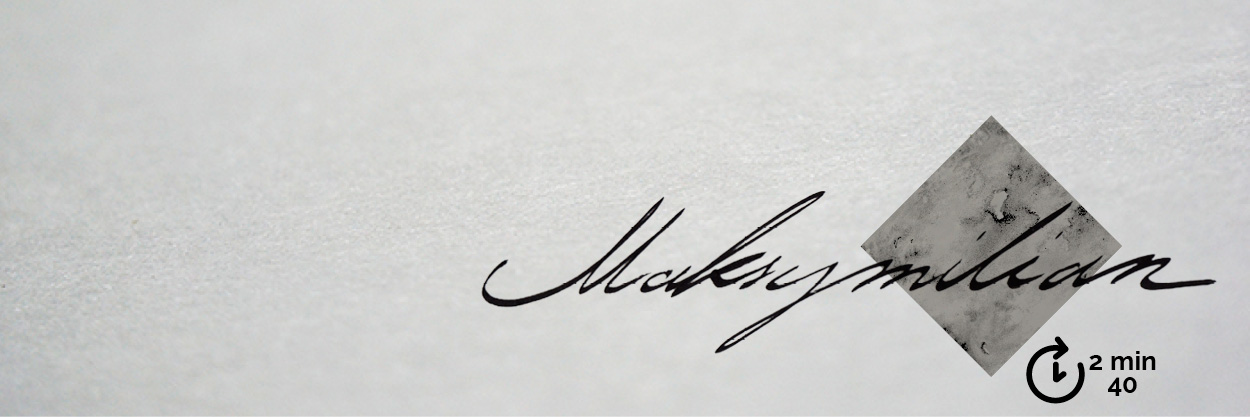 Maksymilian
2 min
40